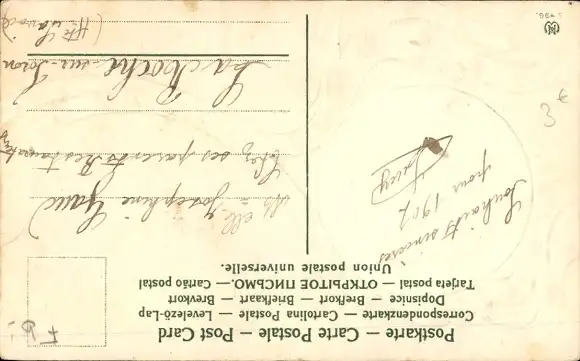 Postkarte — Carte Postale — Post Card
Correspondenzkarte — Cartolina Postale — Levelező-Lap
Dopisnice — Brefkort — Briefkaart — Brevkort
Tarjeta postal — ОТКРЫТОЕ ПИСЬМО. — Cartão postal
Union postale universelle.
Souhaits sincères
pour 1907
Lucy
M elle Joséphine
Chez ses parents Restaurateurs
La Roche-sur-Foron
(Hte Savoie)
3 €